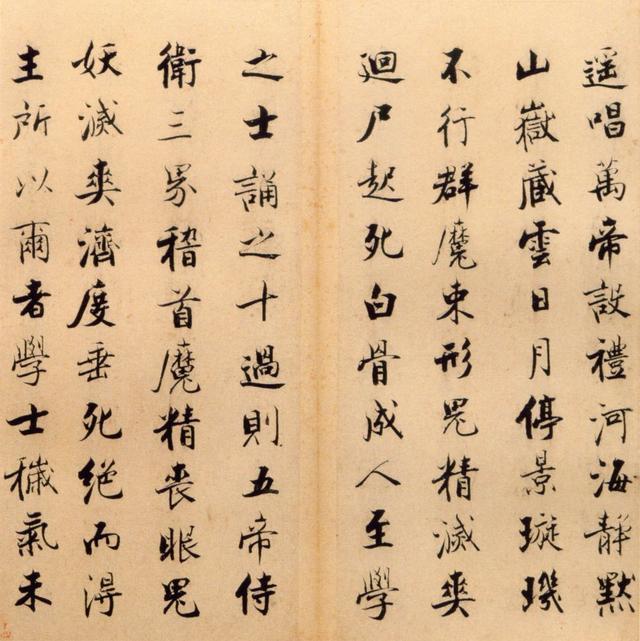 遥唱萬帝設禮河海静默
山嶽藏雲日月停景璇璣
不行群魔束形鬼精滅爽
迴尸起死白骨成人至學
之士誦之十過則五帝侍
衛三界稽首魔精喪眼鬼
妖滅爽濟度垂死絶而淂
主所以爾者學士穢氣未